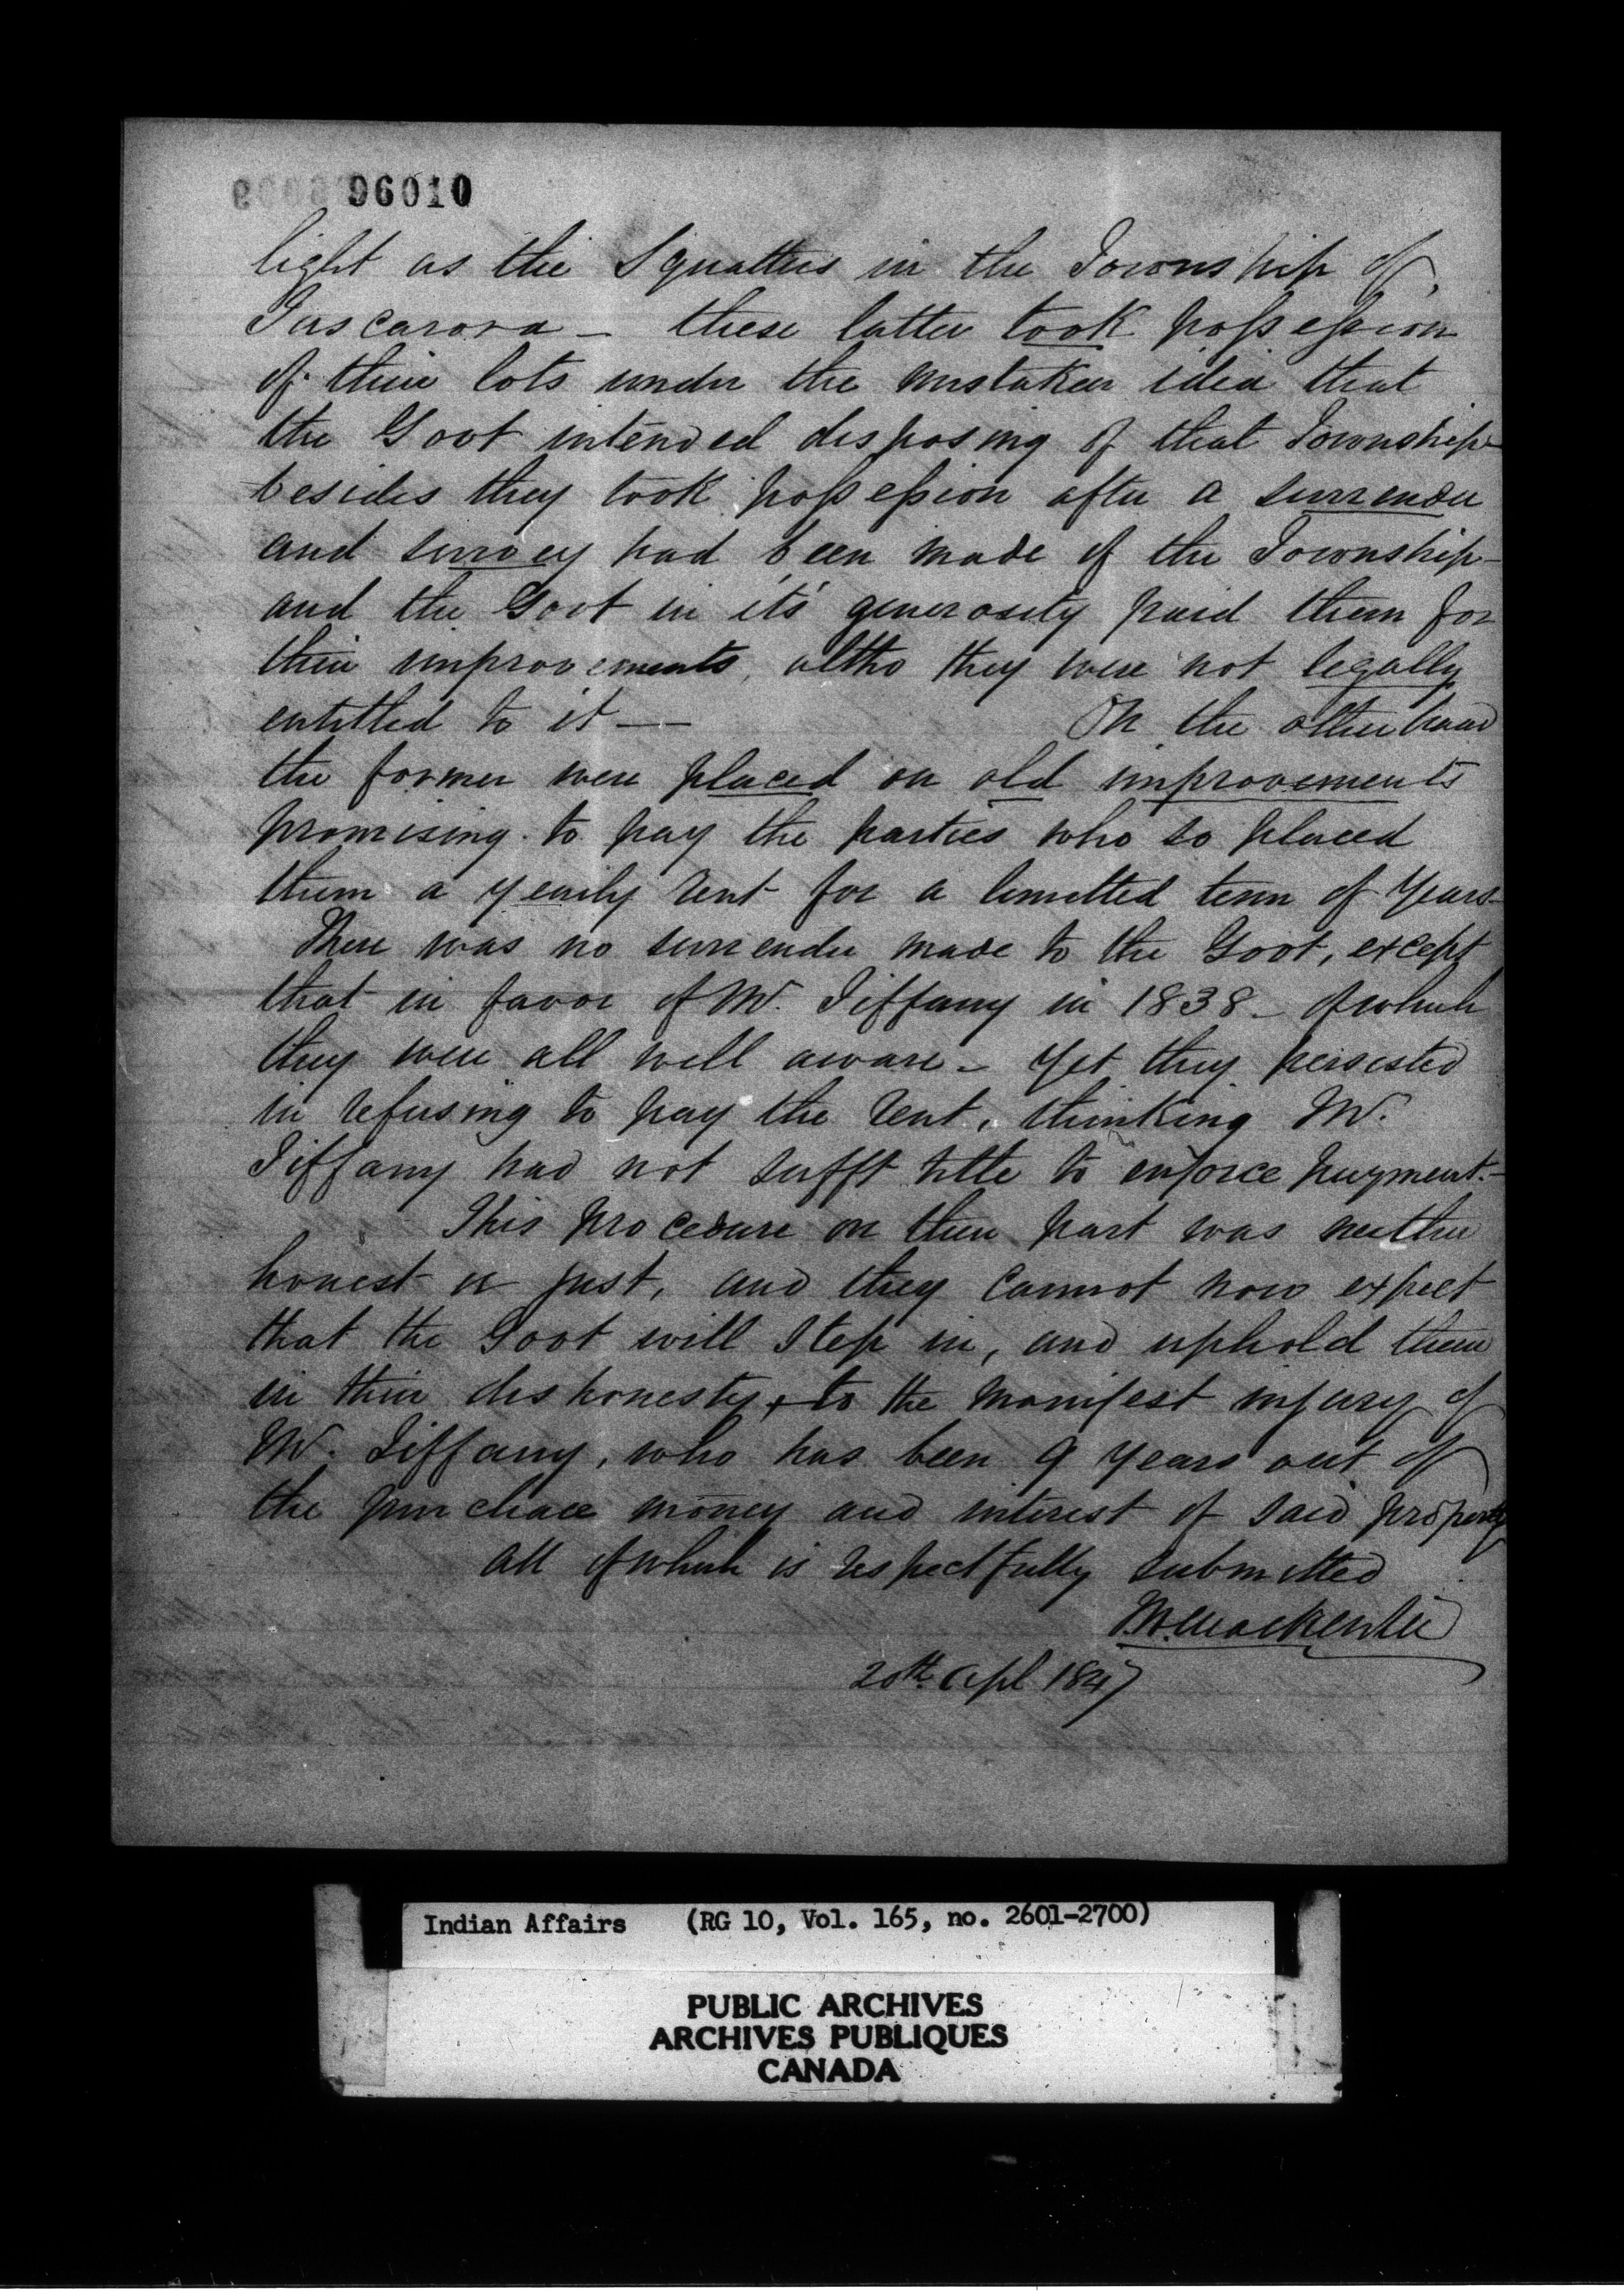 96010
light as the Squatters in the Township of
Tuscarora – these latter took possession
of their lots under the mistaken idea that
the Govt intended disposing of that Township
besides they took possession after a surrender
and survey had been made of the Township –
and the Govt in it's generosity paid them for
their improvements, altho they were not legally
entitled to it — On the other hand
the former were placed on old improvements
promising to pay the parties who so placed
them a yearly rent for a limitted term of Years –
There was no surrender made to the Govt, except
that in favor of Mr. Tiffany in 1838 – of which
they were all well aware – Yet they persisted
in refusing to pay the rent, thinking Mr.
Tiffany had not sufft title to enforce payment. –
This procedure on their part was neither
honest or just, and they cannot now expect
that the Govt will step in, and uphold them
in their dishonesty, to the manifest injury of
Mr. Tiffany, who has been 9 years out of
the purchace money and interest of said property
All of which is respectfully submitted
20th Apl 1847
Indian Affairs (RG 10, Vol. 165, no. 2601-2700)
PUBLIC ARCHIVES
ARCHIVES PUBLIQUES
CANADA